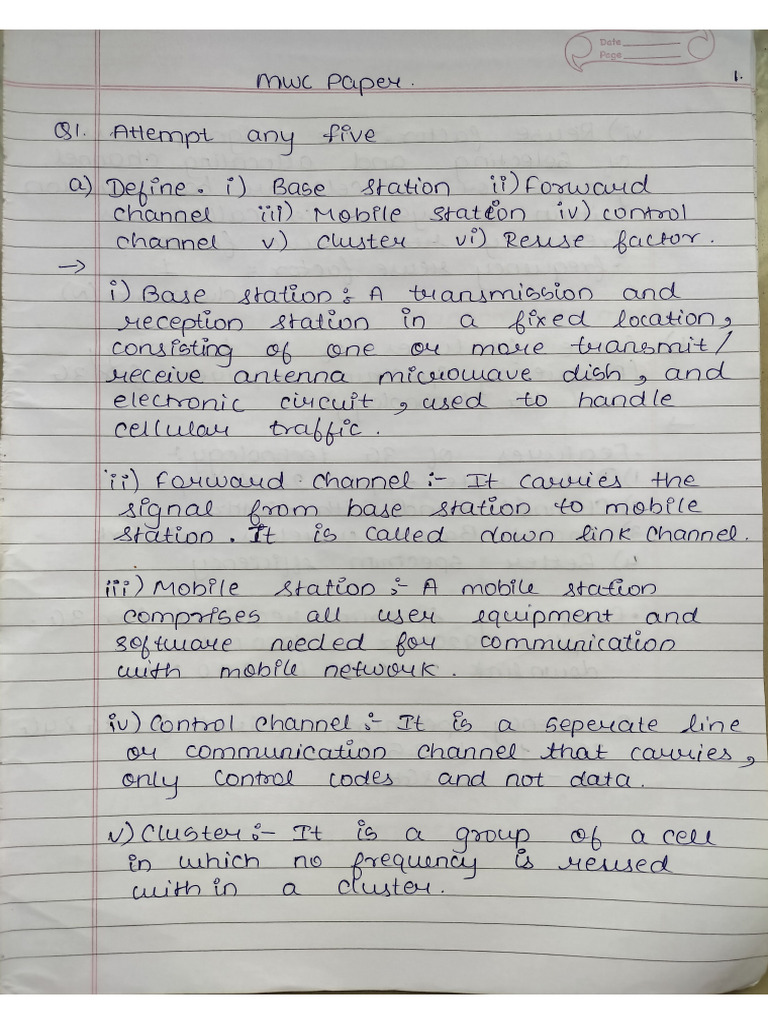 Date
Page
MWC Paper.
1.
Q1. Attempt any five
a) Define. i) Base station ii) Forward
channel iii) Mobile station iv) control
channel v) cluster vi) Reuse factor.
→
i) Base station:- A transmission and
reception station in a fixed location,
consisting of one or more transmit/
receive antenna microwave dish, and
electronic circuit, used to handle
cellular traffic.
ii) Forward channel :- It carries the
signal from base station to mobile
station. It is called down link channel.
iii) Mobile station :- A mobile station
comprises all user equipment and
software needed for communication
with mobile network.
iv) Control channel :- It is a seperate line
or communication channel that carries,
only control codes and not data.
v) Cluster :- It is a group of a cell
in which no frequency is reused
with in a cluster.